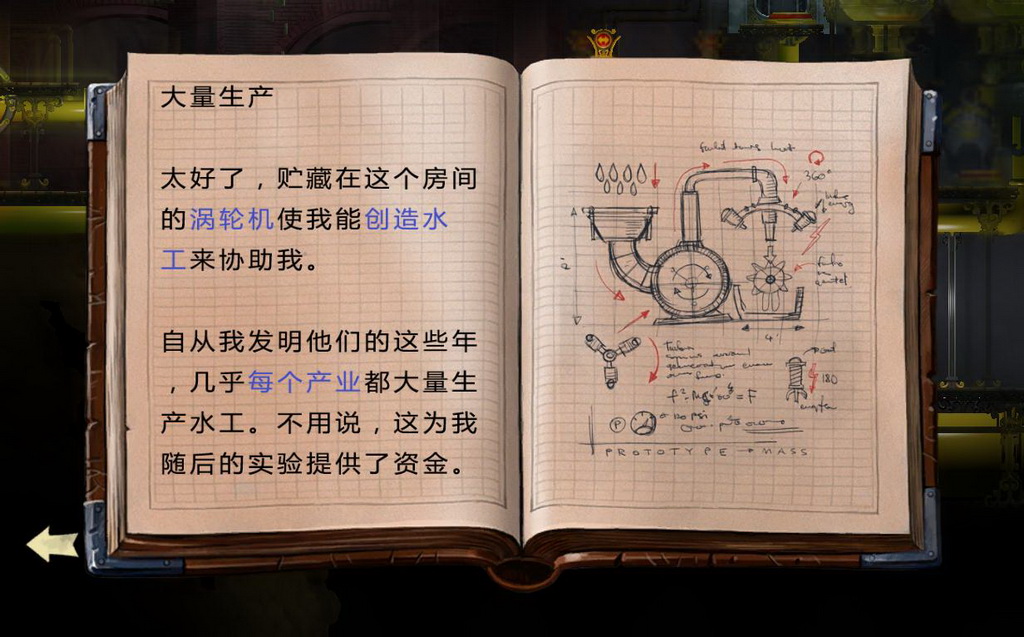 大量生产
太好了，贮藏在这个房间
的涡轮机使我能创造水
工来协助我。
自从我发明他们的这些年
，几乎每个产业都大量生
产水工。不用说，这为我
随后的实验提供了资金。
360°
4'
180
P
PROTOTYPE → MASS